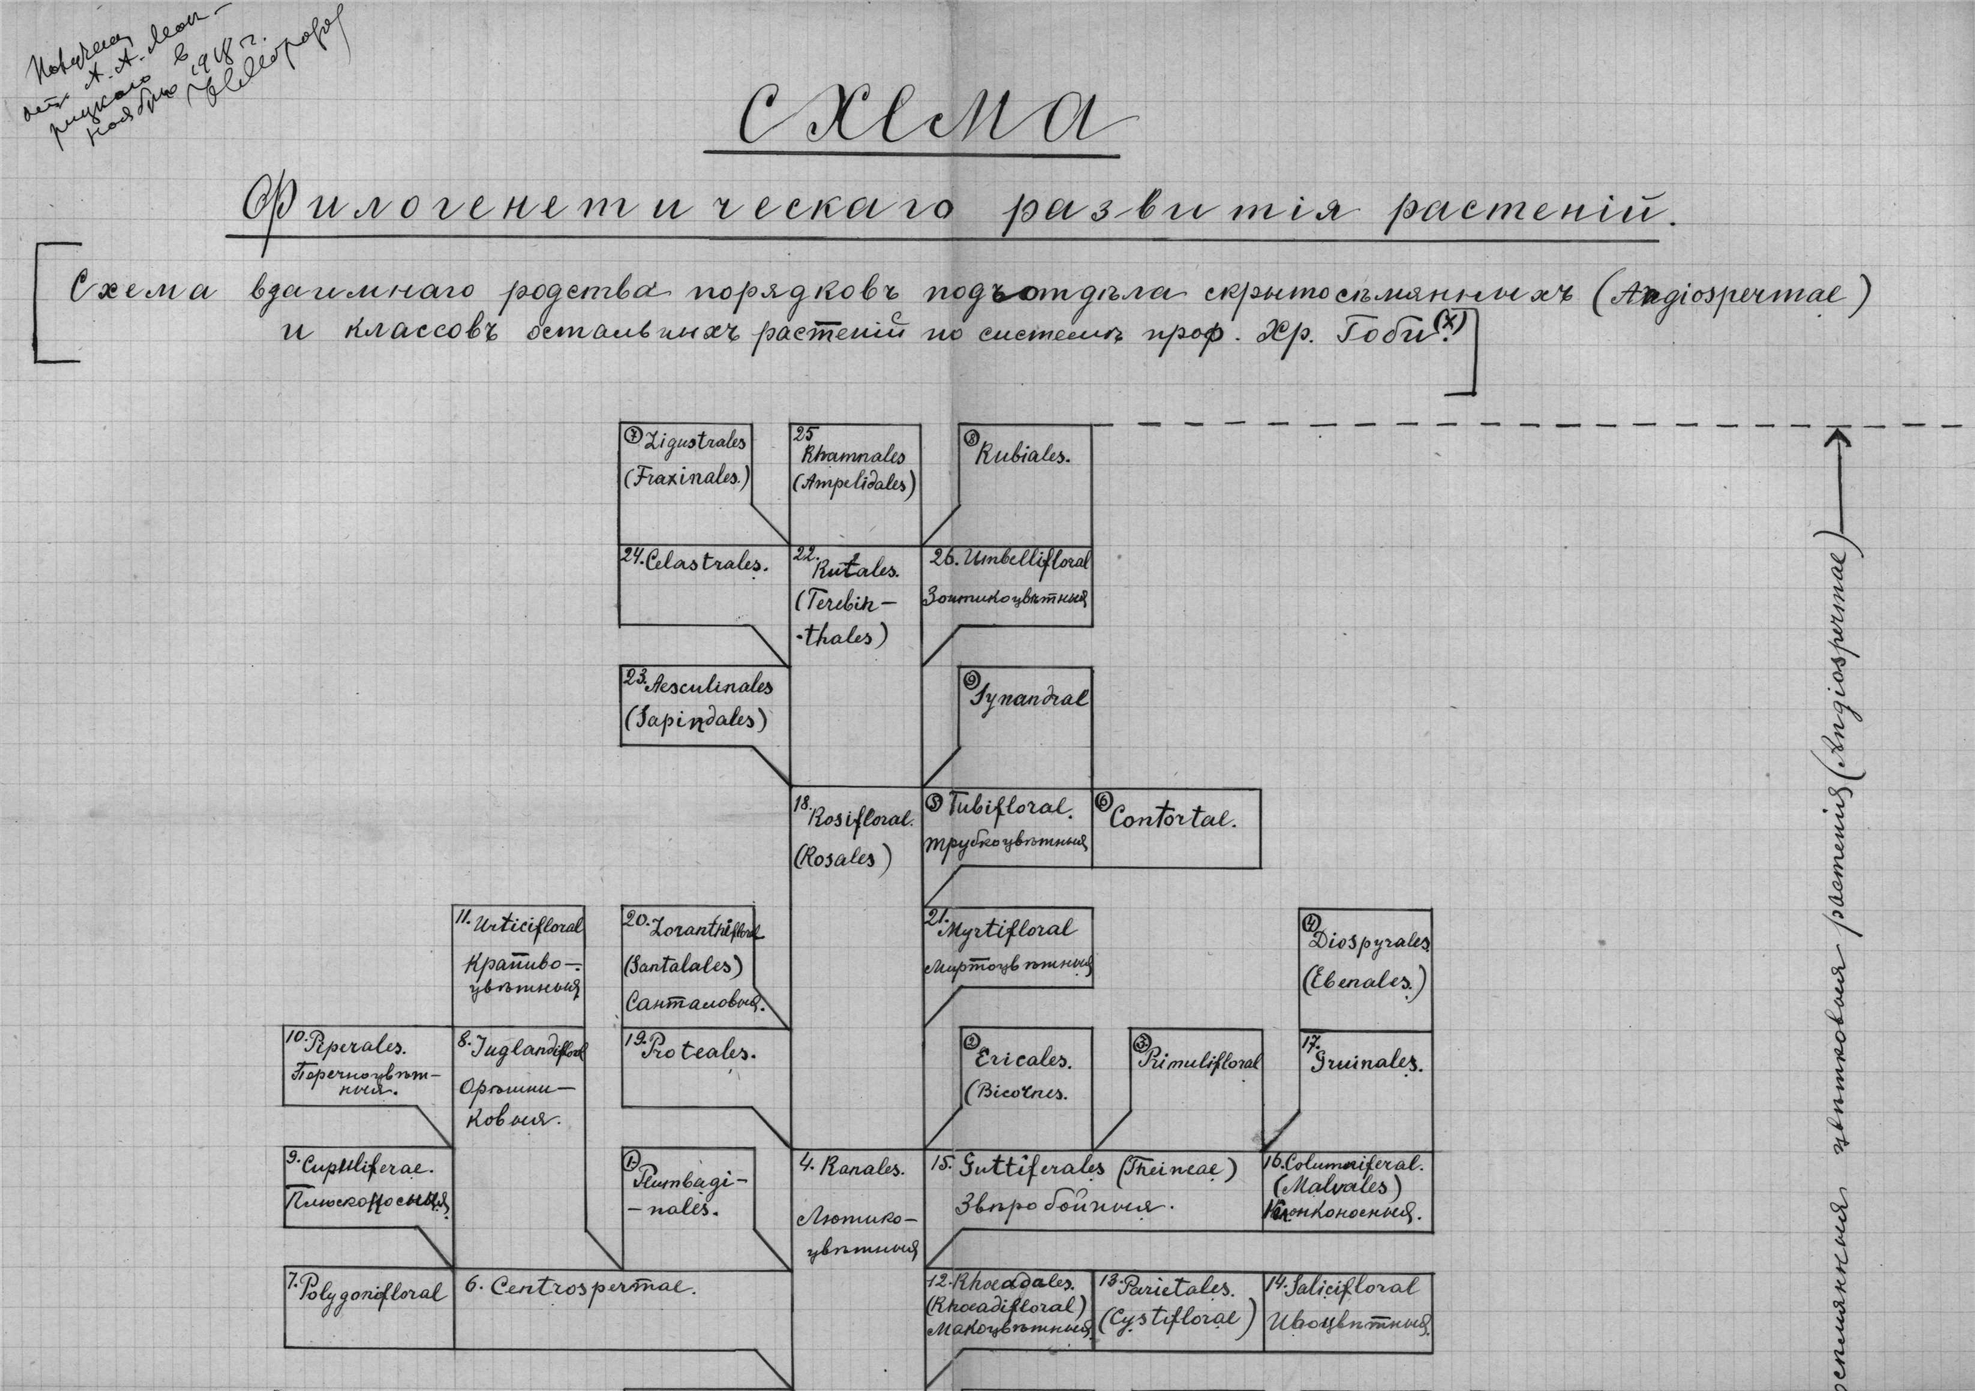 Получена
отъ А. А. Мон-
рицкаго въ
ноябрѣ 1918 г.
СХЕМА
Филогенетическаго развитія растеній.
Схема взаимнаго родства порядковъ подъотдѣла скрытосѣмянныхъ (Angiospermae)
и классовъ остальныхъ растеній по системѣ проф. Хр. Гоби.(x)
7 Ligustrales
(Fraxinales.)
25
Rhamnales
(Ampelidales)
8 Rubiales.
24. Celastrales.
22.
Rutales.
(Terebin-
-thales)
26. Umbelliflorae
Зонтикоцвѣтныя
23. Aesculinales
(Sapindales)
9 Synandrae
18. Rosiflorae.
(Rosales)
5 Tubiflorae.
трубкоцвѣтныя
6 Contortae.
11. Urticiflorae
Крапиво-
цвѣтныя
20. Loranthiflorae
(Santalales)
Санталовыя.
21. Myrtiflorae
Миртоцвѣтныя
4 Diospyrales
(Ebenales.)
10. Piperales.
Перечноцвѣт-
ныя.
8. Juglandiflorae
Орѣшни-
ковыя.
19. Proteales.
2 Ericales.
(Bicornes.
3 Primuliflorae
17. Gruinales.
9. Cupuliferae.
Плюсконосныя
1 Plumbagi-
-nales.
4. Ranales.
Лютико-
цвѣтныя
15. Guttiferales (Theineae)
Звѣробойныя.
16. Columniferae.
(Malvales)
Колонконосныя.
7. Polygoniflorae
6. Centrospermae.
12. Rhoeadales.
(Rhoeadiflorae)
Макоцвѣтныя
13. Parietales.
(Cystiflorae)
14. Saliciflorae
Ивоцвѣтныя.
цвѣтковыя растенія (Angiospermae)